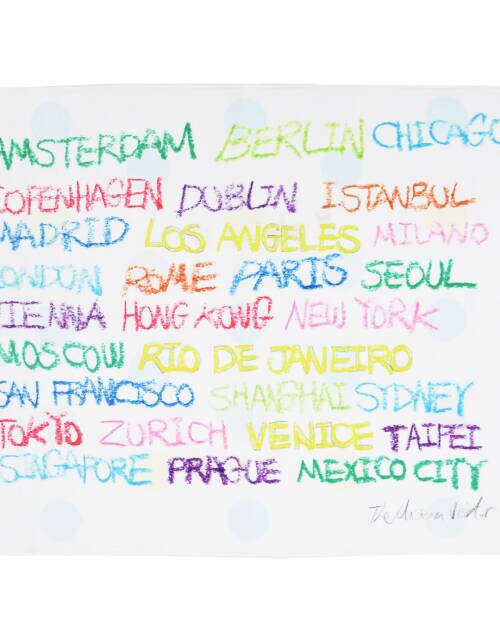 AMSTERDAM BERLIN CHICAGO
COPENHAGEN DUBLIN ISTANBUL
MADRID LOS ANGELES MILANO
LONDON ROME PARIS SEOUL
VIENNA HONG KONG NEW YORK
MOSCOW RIO DE JANEIRO
SAN FRANCISCO SHANGHAI SYDNEY
TOKYO ZURICH VENICE TAIPEI
SINGAPORE PRAGUE MEXICO CITY
The Museum Visitor